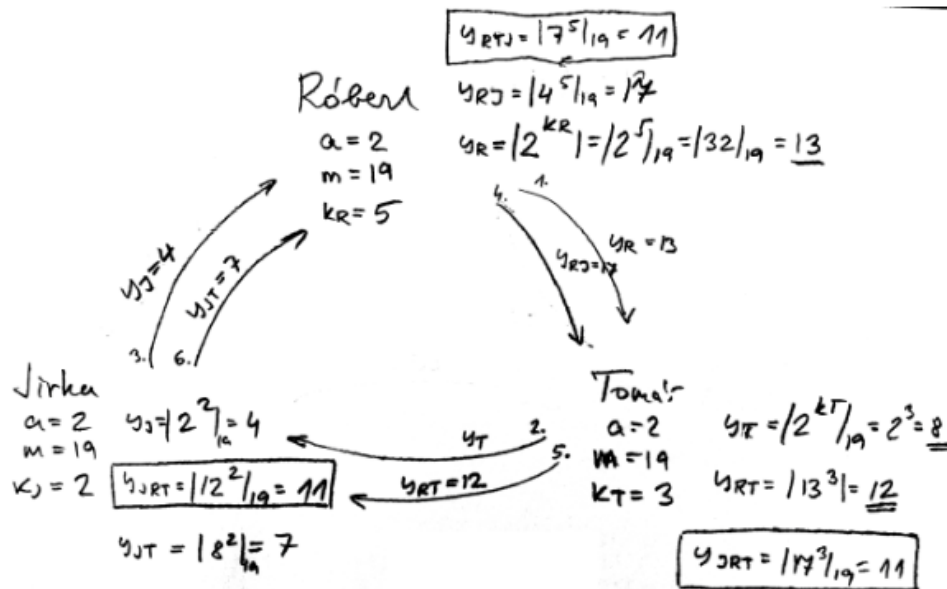 y_RTJ = |7^5|_19 = 11
Róbert
y_RJ = |4^5|_19 = 17
a = 2
y_R = |2^kR| = |2^5|_19 = |32|_19 = 13
m = 19
k_R = 5
4. 1.
y_J=4
y_JT=7
y_R=13
y_RJ=17
3. 6.
Jirka
a = 2
m = 19
k_J = 2
y_J=|2^2|_19 = 4
y_JRT = |12^2|_19 = 11
y_JT = |8^2|_19 = 7
y_T 2.
y_RT=12 5.
Tomáš
a = 2
m = 19
k_T = 3
y_T = |2^kT|_19 = 2^3 = 8
y_RT = |13^3| = 12
y_JRT = |17^3|_19 = 11